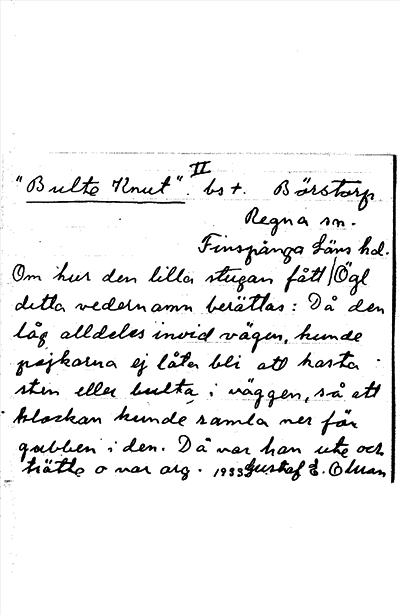 II
"Bulte Knut". bst. Börstorp
Regna sn.
Finspånga Läns hd.
Om hur den lilla stugan fått Ögl
detta vedernamn berättas: Då den
låg alldeles invid vägen, kunde
pojkarna ej låta bli att kasta
sten eller bulta i väggen, så att
klockan kunde ramla ner för
gubben i den. Då var han ute och
trätte o var arg. 1933 Gustaf E.